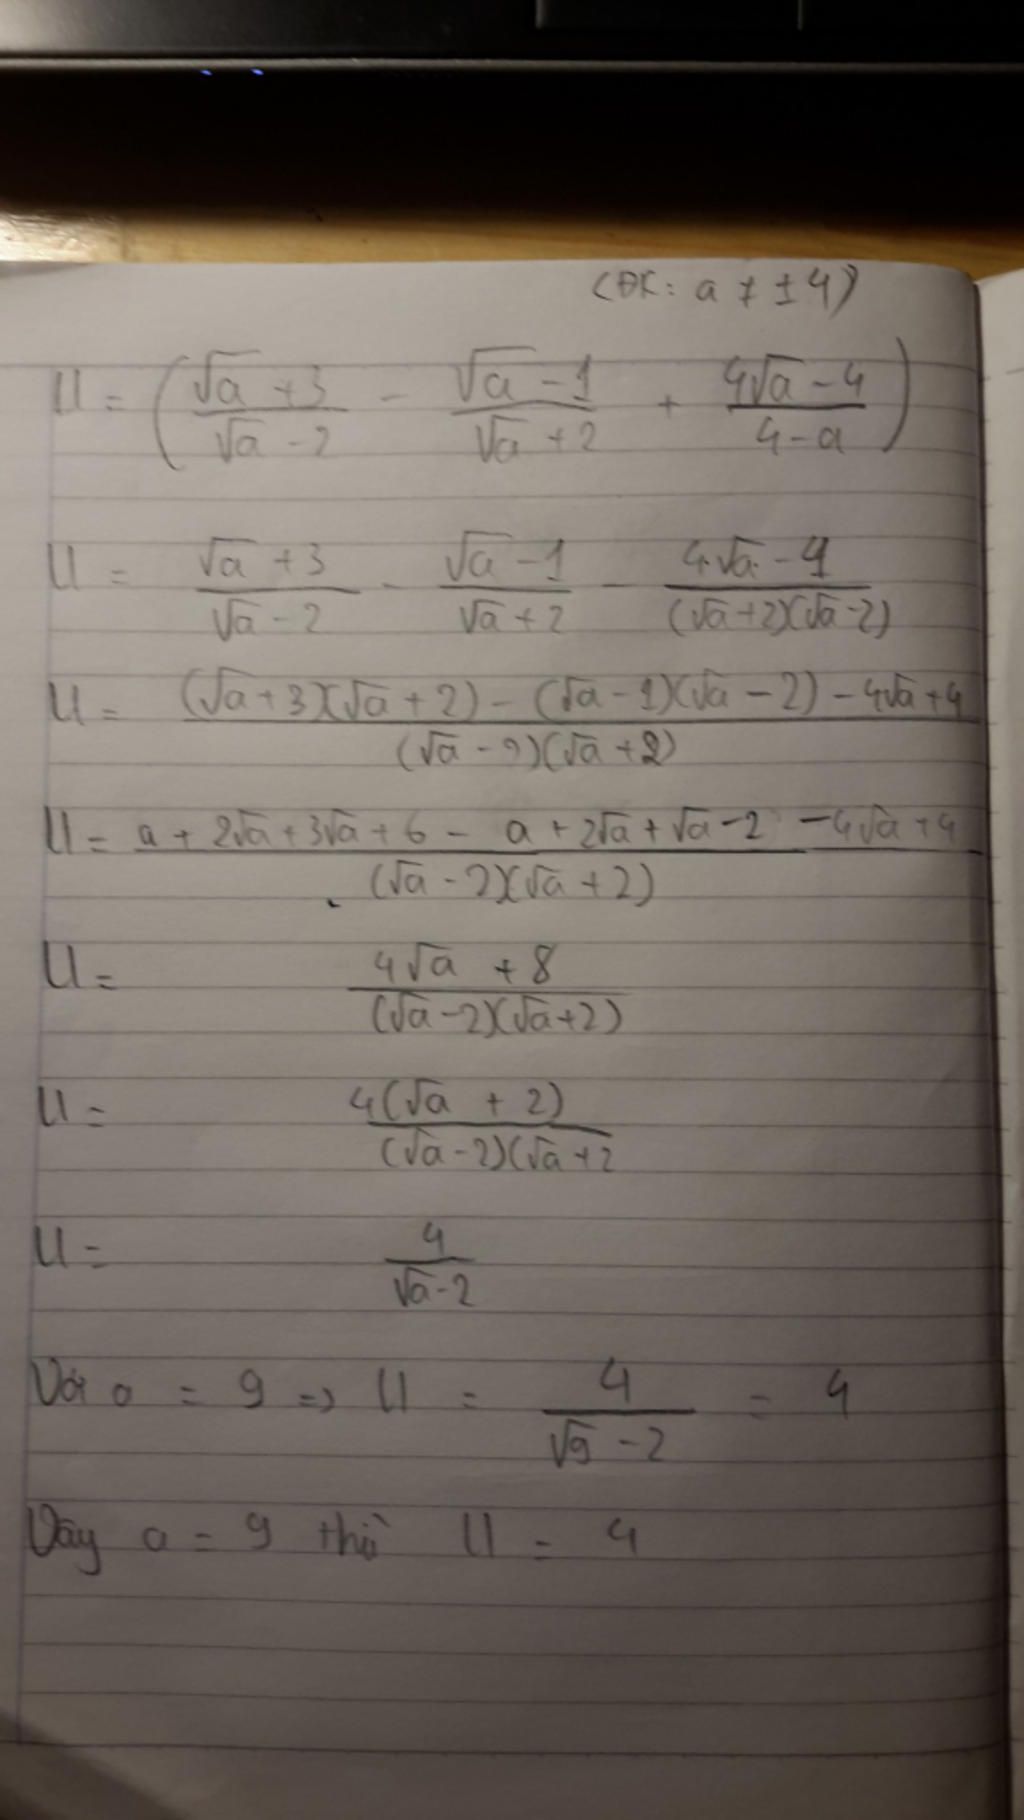 (ĐK: a ≠ ±4)
U = ( (√a + 3)/(√a - 2) - (√a - 1)/(√a + 2) + (4√a - 4)/(4 - a) )
U = (√a + 3)/(√a - 2) - (√a - 1)/(√a + 2) - (4.√a. - 4)/((√a + 2)(√a - 2))
U = ((√a + 3)(√a + 2) - (√a - 1)(√a - 2) - 4√a + 4)/((√a - 2)(√a + 2))
U = (a + 2√a + 3√a + 6 - a + 2√a + √a - 2 - 4√a + 4)/((√a - 2)(√a + 2))
U = (4√a + 8)/((√a - 2)(√a + 2))
U = 4(√a + 2)/((√a - 2)(√a + 2
U = 4/(√a - 2)
Với a = 9 => U = 4/(√9 - 2) = 4
Vậy a = 9 thì U = 4